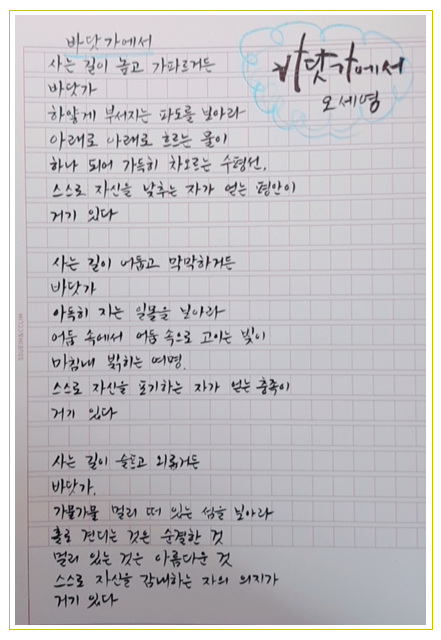 바닷가에서
바닷가에서
오세영
사는 길이 높고 가파르거든
바닷가
하얗게 부서지는 파도를 보아라
아래로 아래로 흐르는 물이
하나 되어 가득히 차오르는 수평선,
스스로 자신을 낮추는 자가 얻는 평안이
거기 있다
사는 길이 어둡고 막막하거든
바닷가
아득히 지는 일몰을 보아라
어둠 속에서 어둠 속으로 고이는 빛이
마침내 밝히는 여명,
스스로 자신을 포기하는 자가 얻는 충족이
거기 있다
사는 길이 슬프고 외롭거든
바닷가,
가물가물 멀리 떠 있는 섬을 보아라
홀로 견디는 것은 순결한 것
멀리 있는 것은 아름다운 것
스스로 자신을 감내하는 자의 의지가
거기 있다